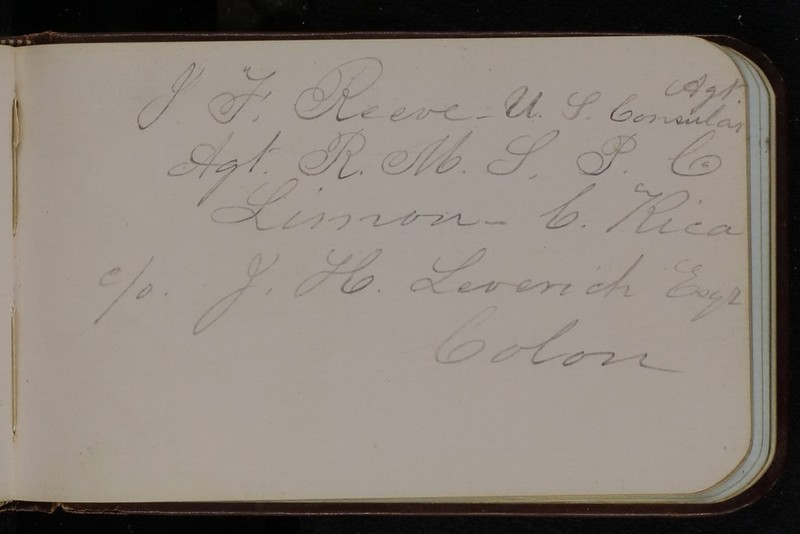 J. F. Reeve - U. S. Consular Agt.
Agt. R. M. S. P. Co
Limon - C. Rica
c/o. J. H. Leverich Esqr
Colon